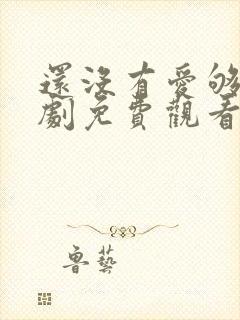 還沒有愛够
劇免費觀看
魯藝